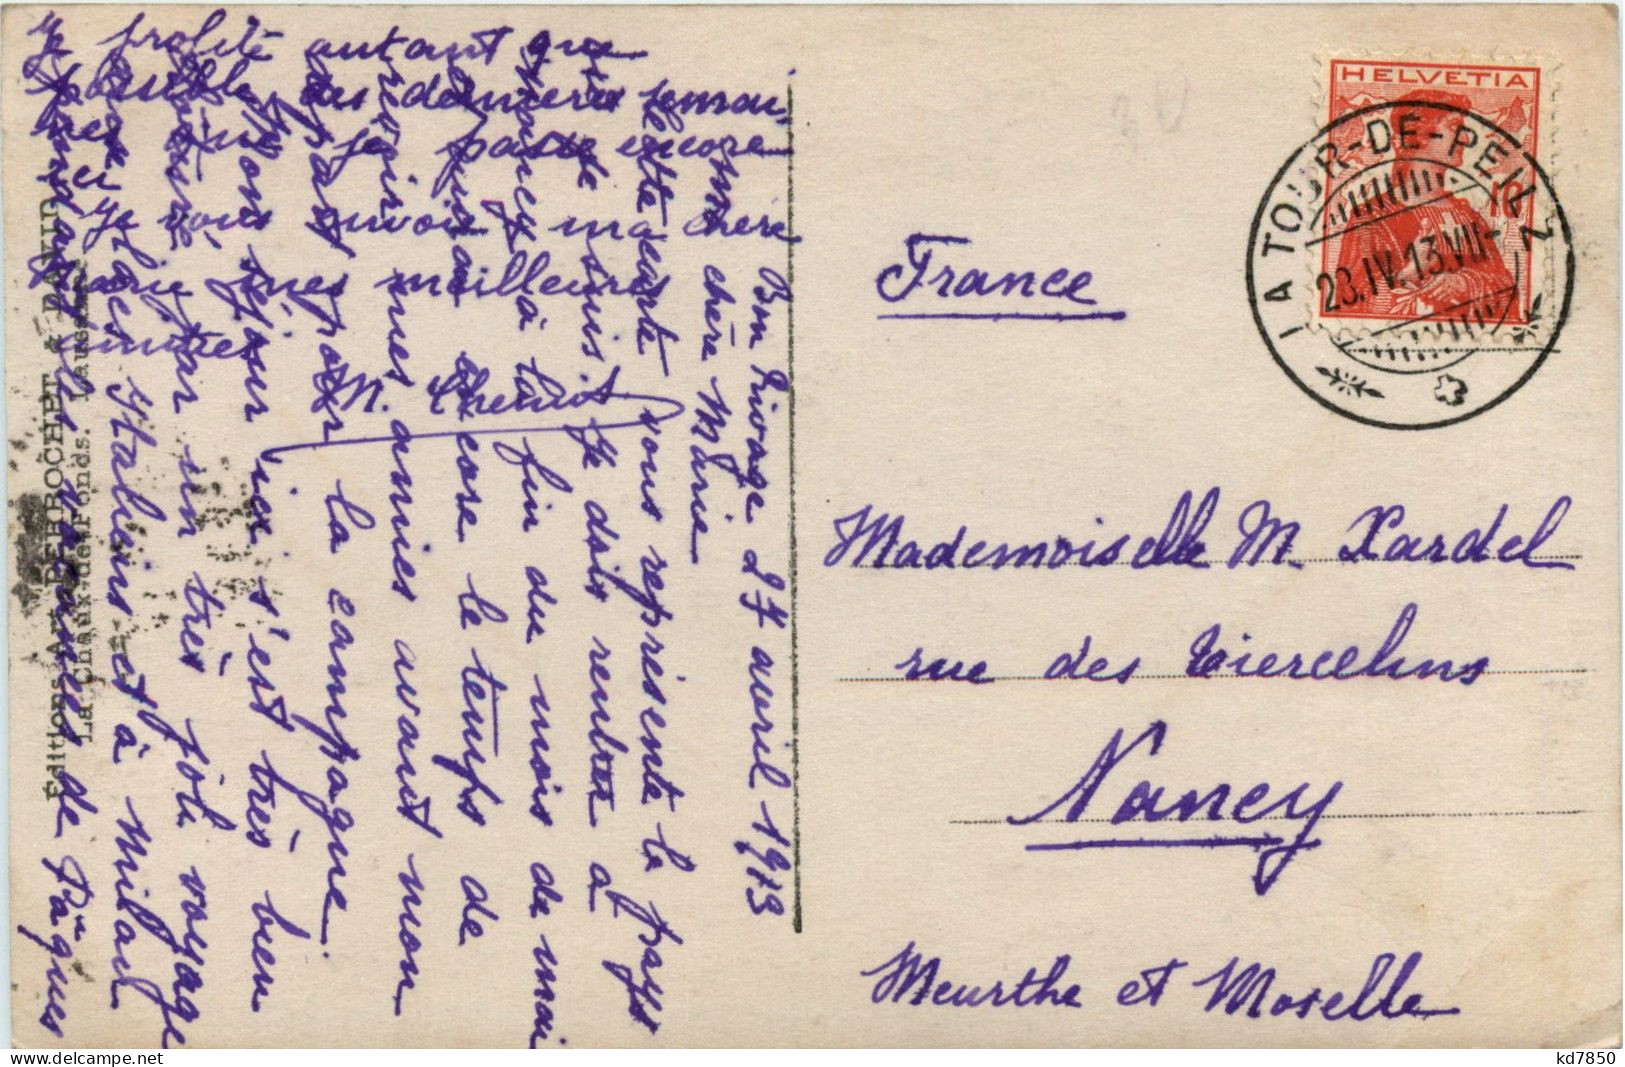 Bon Rivage 27 avril 1913
Ma chère Marie
Cette carte vous représente le pays
que je dois rentrer à
Nancy à la fin du mois de mai
encore le temps de
mes amies avant mon
départ pour la campagne.
Mon séjour ici s'est très bien
par un très joli voyage
aux lacs Italiens et à Milan
pendant les vacances de Pâques
Je profite autant que
possible des dernières semai-
nes que je passe encore
et je vous envoie, ma chère
mes meilleures
amitiés
M. Chenut
Editions Art. PERROCHET & DAVID
La Chaux-de-Fonds. Lausanne
HELVETIA
10
LA TOUR-DE-PEILZ
23.IV.13.VII-
France
Mademoiselle M. Xardel
rue des Tiercelins
Nancy
Meurthe et Moselle
kd7850